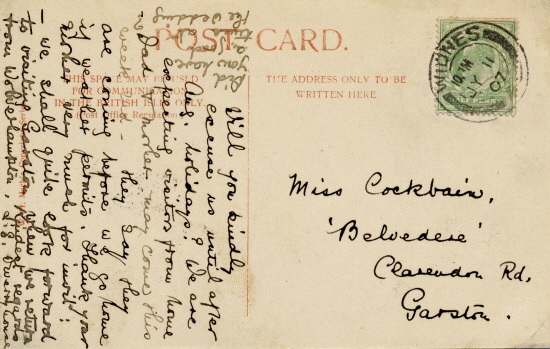 POST CARD.
THIS SPACE MAY BE USED
FOR COMMUNICATION
IN THE BRITISH ISLES ONLY.
(Post Office Regulation)
THE ADDRESS ONLY TO BE
WRITTEN HERE
WIDNES
JY 1
07
Miss Cockbain,
'Belvedere'
Clarendon Rd,
Garston.
Will you kindly
excuse us until after
Aug. holidays? We are
expecting visitors from home
- Dad & Mother may come this
week - they say they
are coming before we go home
if weather permits. Thank your
mother very much for invit.
- we shall quite look forward
to visiting Garston when we return
from Wolverhampton. Kindest regards
Did you have
the Wedding